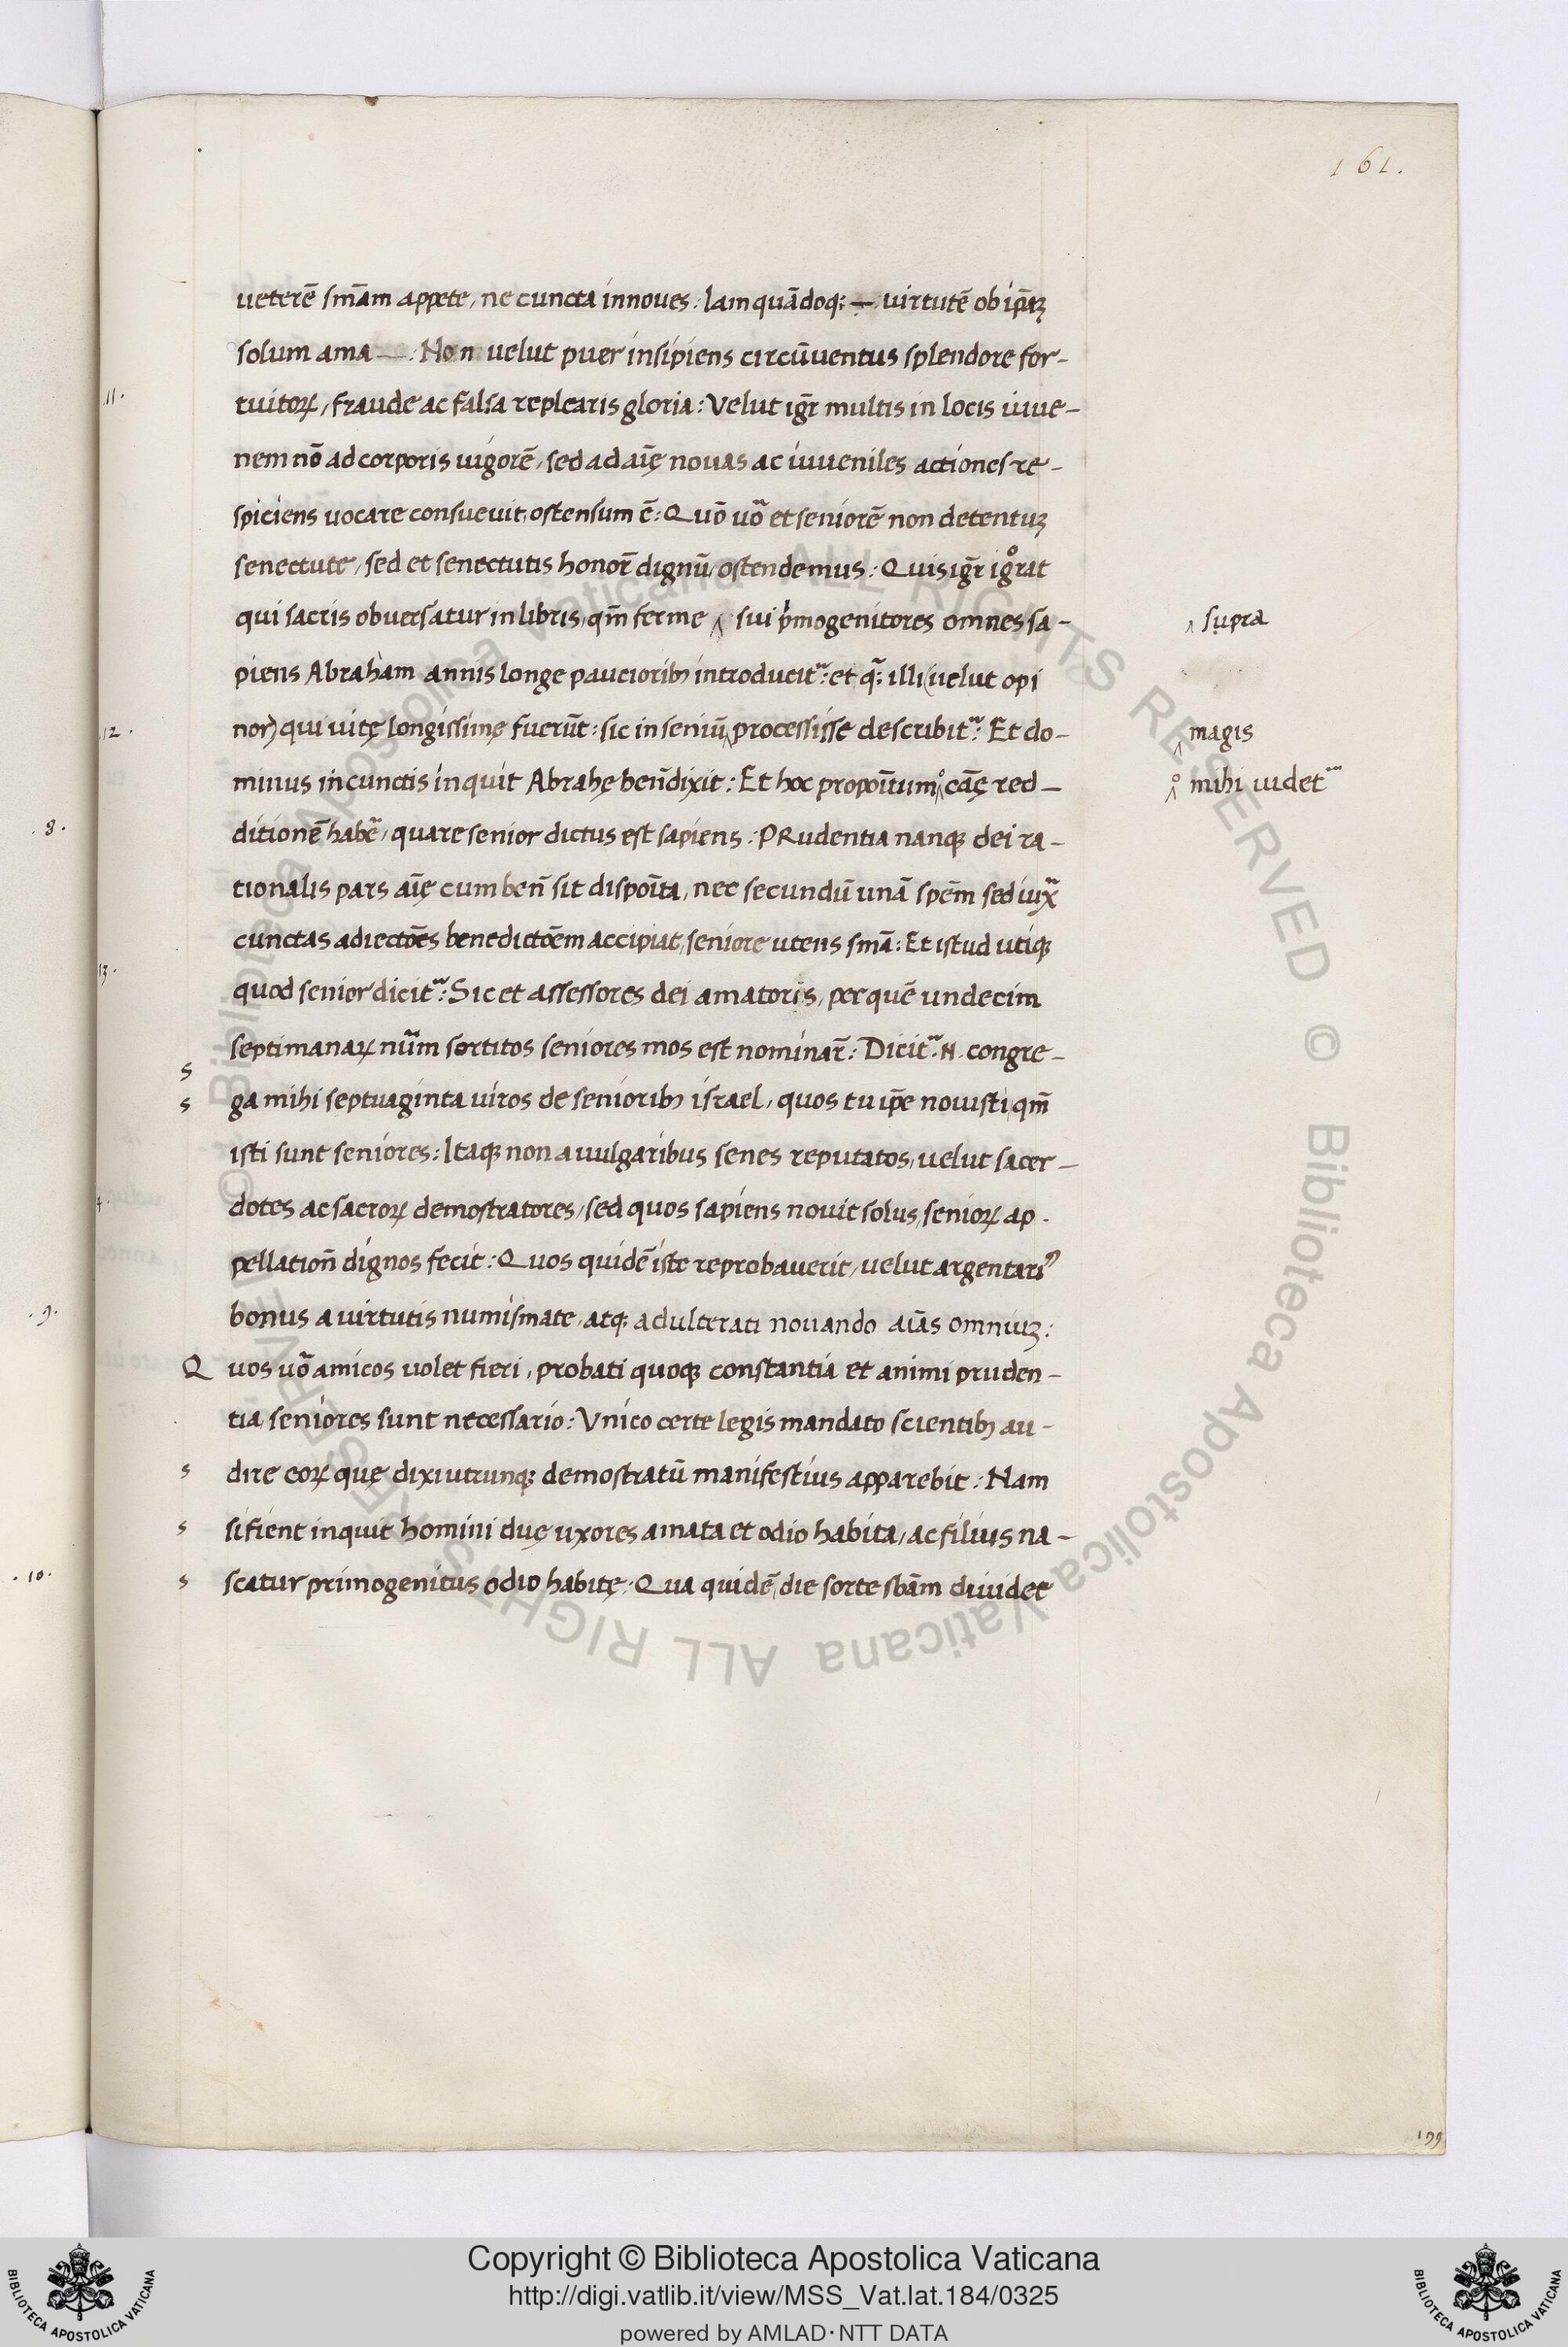 161.
ueterē sm̄am appete, ne cuncta innoues: Iam quādoq; — uirtutē ob ip̄aꝫ
solum ama —: Non uelut puer insipiens circūuentus splendore for-
tuitoꝝ, fraude ac falsa replearis gloria: Velut igr̄ multis in locis iuue-
nem nō ad corporis uigorē, sed ad aīę nouas ac iuueniles actiones re-
spiciens uocare consueuit, ostensum ē: Quō uoᷓ et seniorē non detentuꝫ
senectute, sed et senectutis honor̄ dignū, ostendemus: Quis igr̄ igͦrat
qui sacris obuersatur in libris, qm̄ ferme ‸ sui p̍mogenitores omnes sa-
‸ supra
piens Abraham annis longe paucioribꝫ introducitᷓ: et qᷓ; illi (uelut opi
nor) qui uitę longissimę fuerūt: sic in seniū ‸ processisse describitᷓ: Et do-
‸ magis
minus in cunctis inquit Abrahę ben̄dixit: Et hoc propoītum ‸̊ cāę red-
‸̊ mihi uidetᷓ
ditionē habeᷓ, quare senior dictus est sapiens: PRudentia nanqꝫ dei ra-
tionalis pars aīę cum ben̄ sit dispoīta, nec secundū unā spēm sed iuxᷓ
cunctas adiectōes benedictōem accipiat, seniore utens sm̄a: Et istud utiqꝫ
quod senior dicitᷓ: Sic et assessores dei amatoris, per quē undecim
septimanaꝝ nuᷓm sortitos seniores mos est nominar̄: Dicitᷓ .N. congre-
ga mihi septuaginta uiros de senioribꝫ israel, quos tu ip̄e nouisti, qm̄
isti sunt seniores: Itaqꝫ non a uulgaribus senes reputatos, uelut sacer-
dotes ac sacroꝝ demostratores, sed quos sapiens nouit solus, senioꝝ ap-
pellation̄ dignos fecit: Quos quidē iste reprobauerit, uelut argentariꝰ
bonus a uirtutis numismate, atq; adulterati nouando aīas omniuꝫ:
Quos uoᷓ amicos uolet fieri, probati quoqꝫ constantia et animi pruden-
tia, seniores sunt necessario: Vnico certe legis mandato scientibꝫ au-
dire eoꝝ quę dixi utrunqꝫ demostratū manifestius apparebit: Nam
si fient inquit homini duę uxores amata et odio habita, ac filius na-
scatur primogenitus odio habitę: Qua quidē die sorte sb̄am diuidet
11.
12.
13.
.8.
.9.
.10.
s
s
s
s
s
199
Copyright © Biblioteca Apostolica Vaticana
http://digi.vatlib.it/view/MSS_Vat.lat.184/0325
powered by AMLAD·NTT DATA
© Biblioteca Apostolica Vaticana ALL RIGHTS RESERVED
© Biblioteca Apostolica Vaticana ALL RIGHTS RESERVED
BIBLIOTECA APOSTOLICA VATICANA
BIBLIOTECA APOSTOLICA VATICANA